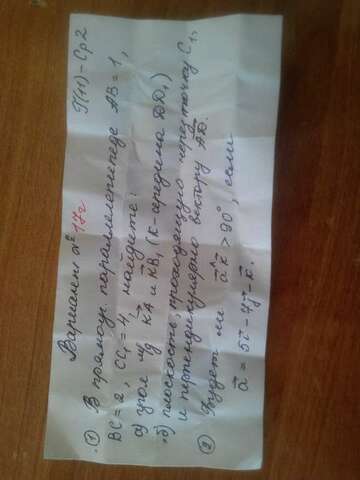 Вариант 17г П(11)-Ср2
① В прямоуг. параллелепипеде AB=1,
BC=2, CC₁=4, найдите:
а) угол м/д KA и KB₁ (K-середина DD₁)
б) плоскость, проходящую через точку C₁,
и перпендикулярно вектору AD.
② Будет ли a^k > 90°, если
a = 5i - 7j - k.